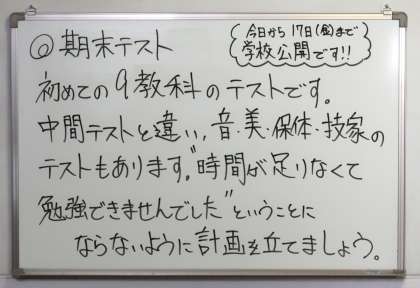 ◎期末テスト
今日から17日(金)まで
学校公開です!!
初めての9教科のテストです。
中間テストと違い,音・美・保体・技家の
テストもあります。"時間が足りなくて
勉強できませんでした"ということに
ならないように計画を立てましょう。